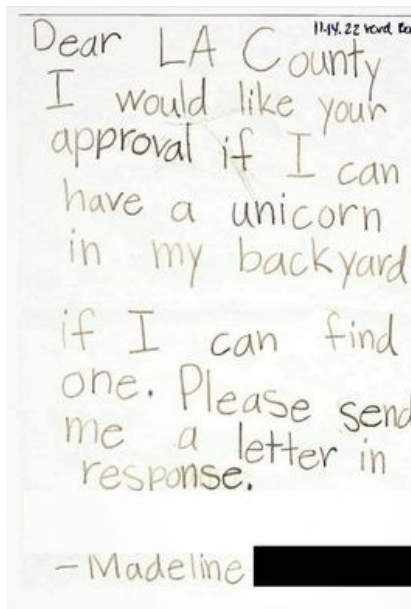 11.14.22 rcvd.
Dear LA County
I would like your
approval if I can
have a unicorn
in my backyard
if I can find
one. Please send
me a letter in
response.
- Madeline